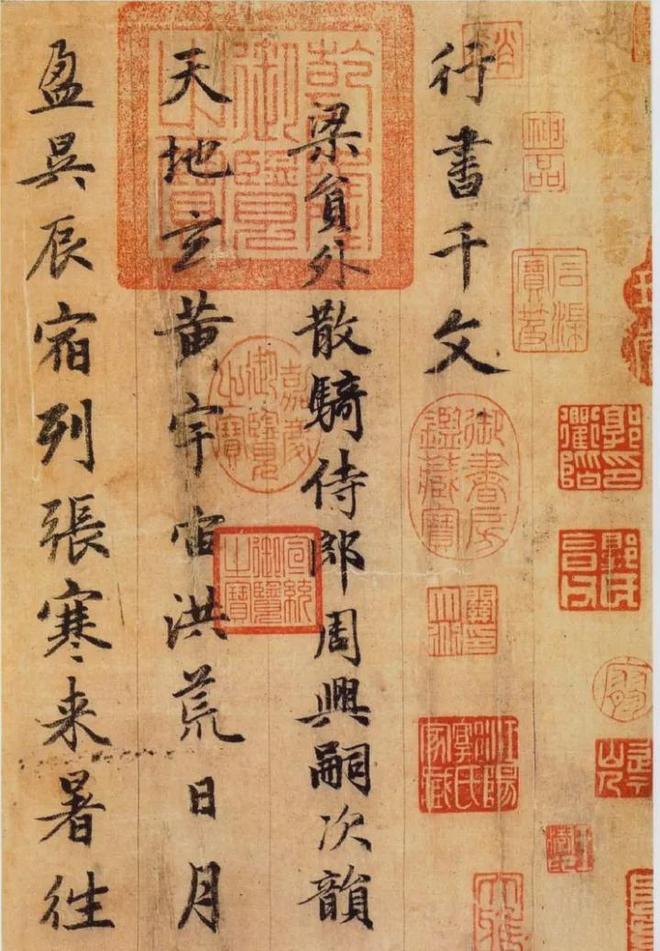 神品
石渠寶笈
行書千文
御書房鑑藏寶
梁貟外散騎侍郎周興嗣次韻
乾隆御覽之寶
嘉慶御覽之寶
宣統御覽之寶
天地玄黄宇宙洪荒日月
盈昃辰宿列張寒来暑往